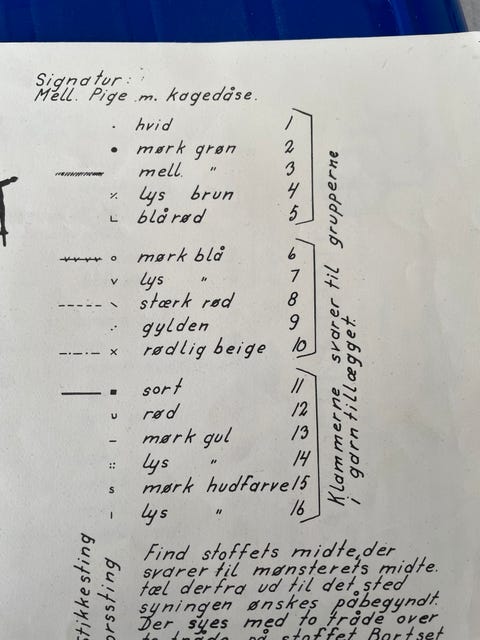 Signatur:
Mell. Pige m. kagedåse.
hvid 1
mørk grøn 2
mell. " 3
lys brun 4
blårød 5
mørk blå 6
lys " 7
stærk rød 8
gylden 9
rødlig beige 10
sort 11
rød 12
mørk gul 13
lys " 14
s mørk hudfarve 15
lys " 16
Klammerne svarer til grupperne
i garntillægget.
stikkesting
orssting
Find stoffets midte, der
svarer til mønsterets midte.
tæl derfra ud til det sted
syningen ønskes påbegyndt.
Der syes med to tråde over
to tråde på stoffet Bortset